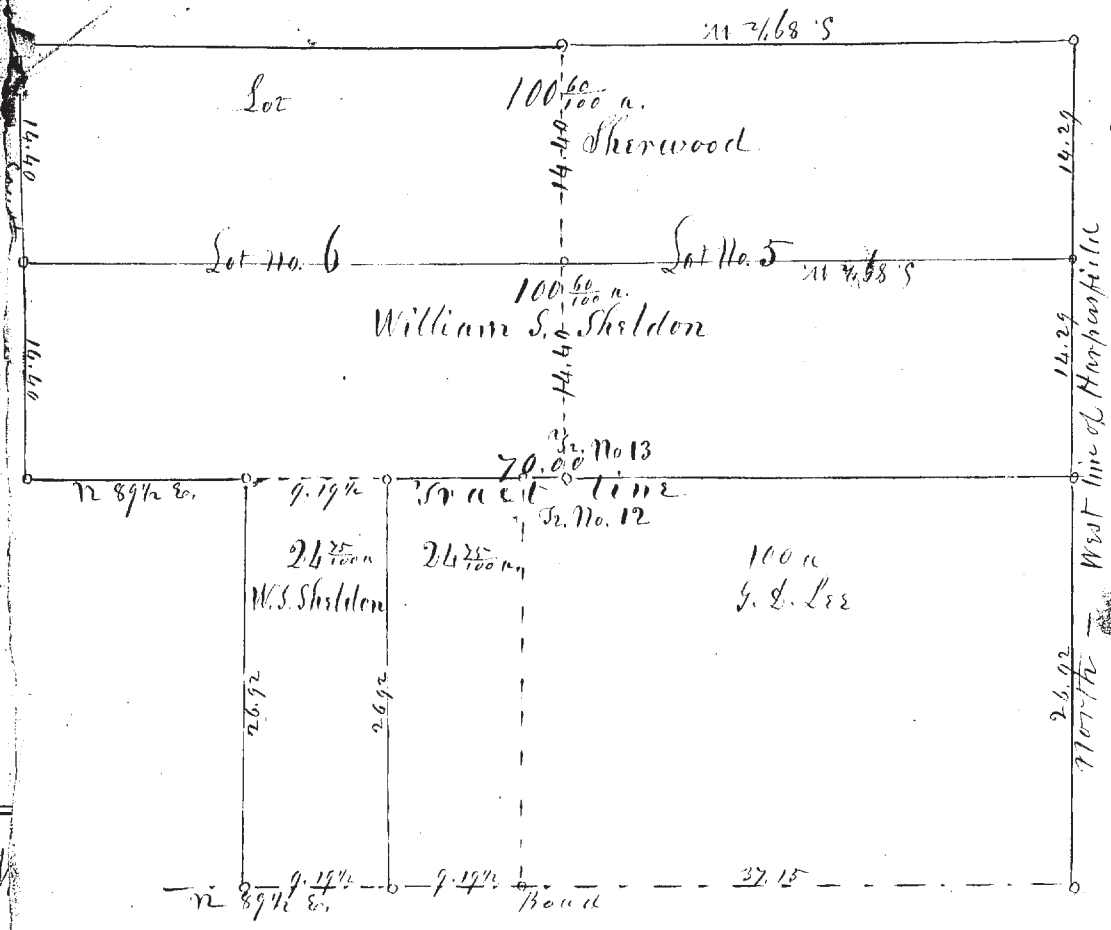 S 89½ W
Lot
100 60/100 a.
Sherwood
14.40
14.40
14.29
South
Lot No. 6
Lot No. 5
S 89½ W
100 60/100 a.
William S. Sheldon
14.40
14.40
14.29
West line of Harpersfield
Tr. No 13
70.00
N 89½ E.
9.19½
Tract line
Tr. No. 12
24 75/100 a
24 75/100 a
100 a
W.S. Sheldon
G. D. Lee
26.92
26.92
26.92
North
9.19½
9.19½
37.15
N 89½ E.
Road